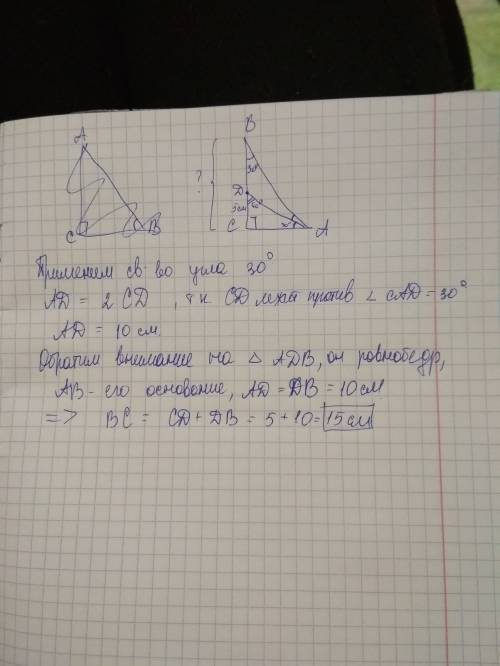 A
C
B
B
30°
?
D
5см
60°
C
30°
A
Применем св во угла 30°
AD = 2 CD , т к CD лежат против ∠ CAD = 30°
AD = 10 см.
Обратим внимание на △ ADB, он равнобедр,
AB - его основание, AD = DB = 10 см
=> BC = CD + DB = 5 + 10 = 15 см